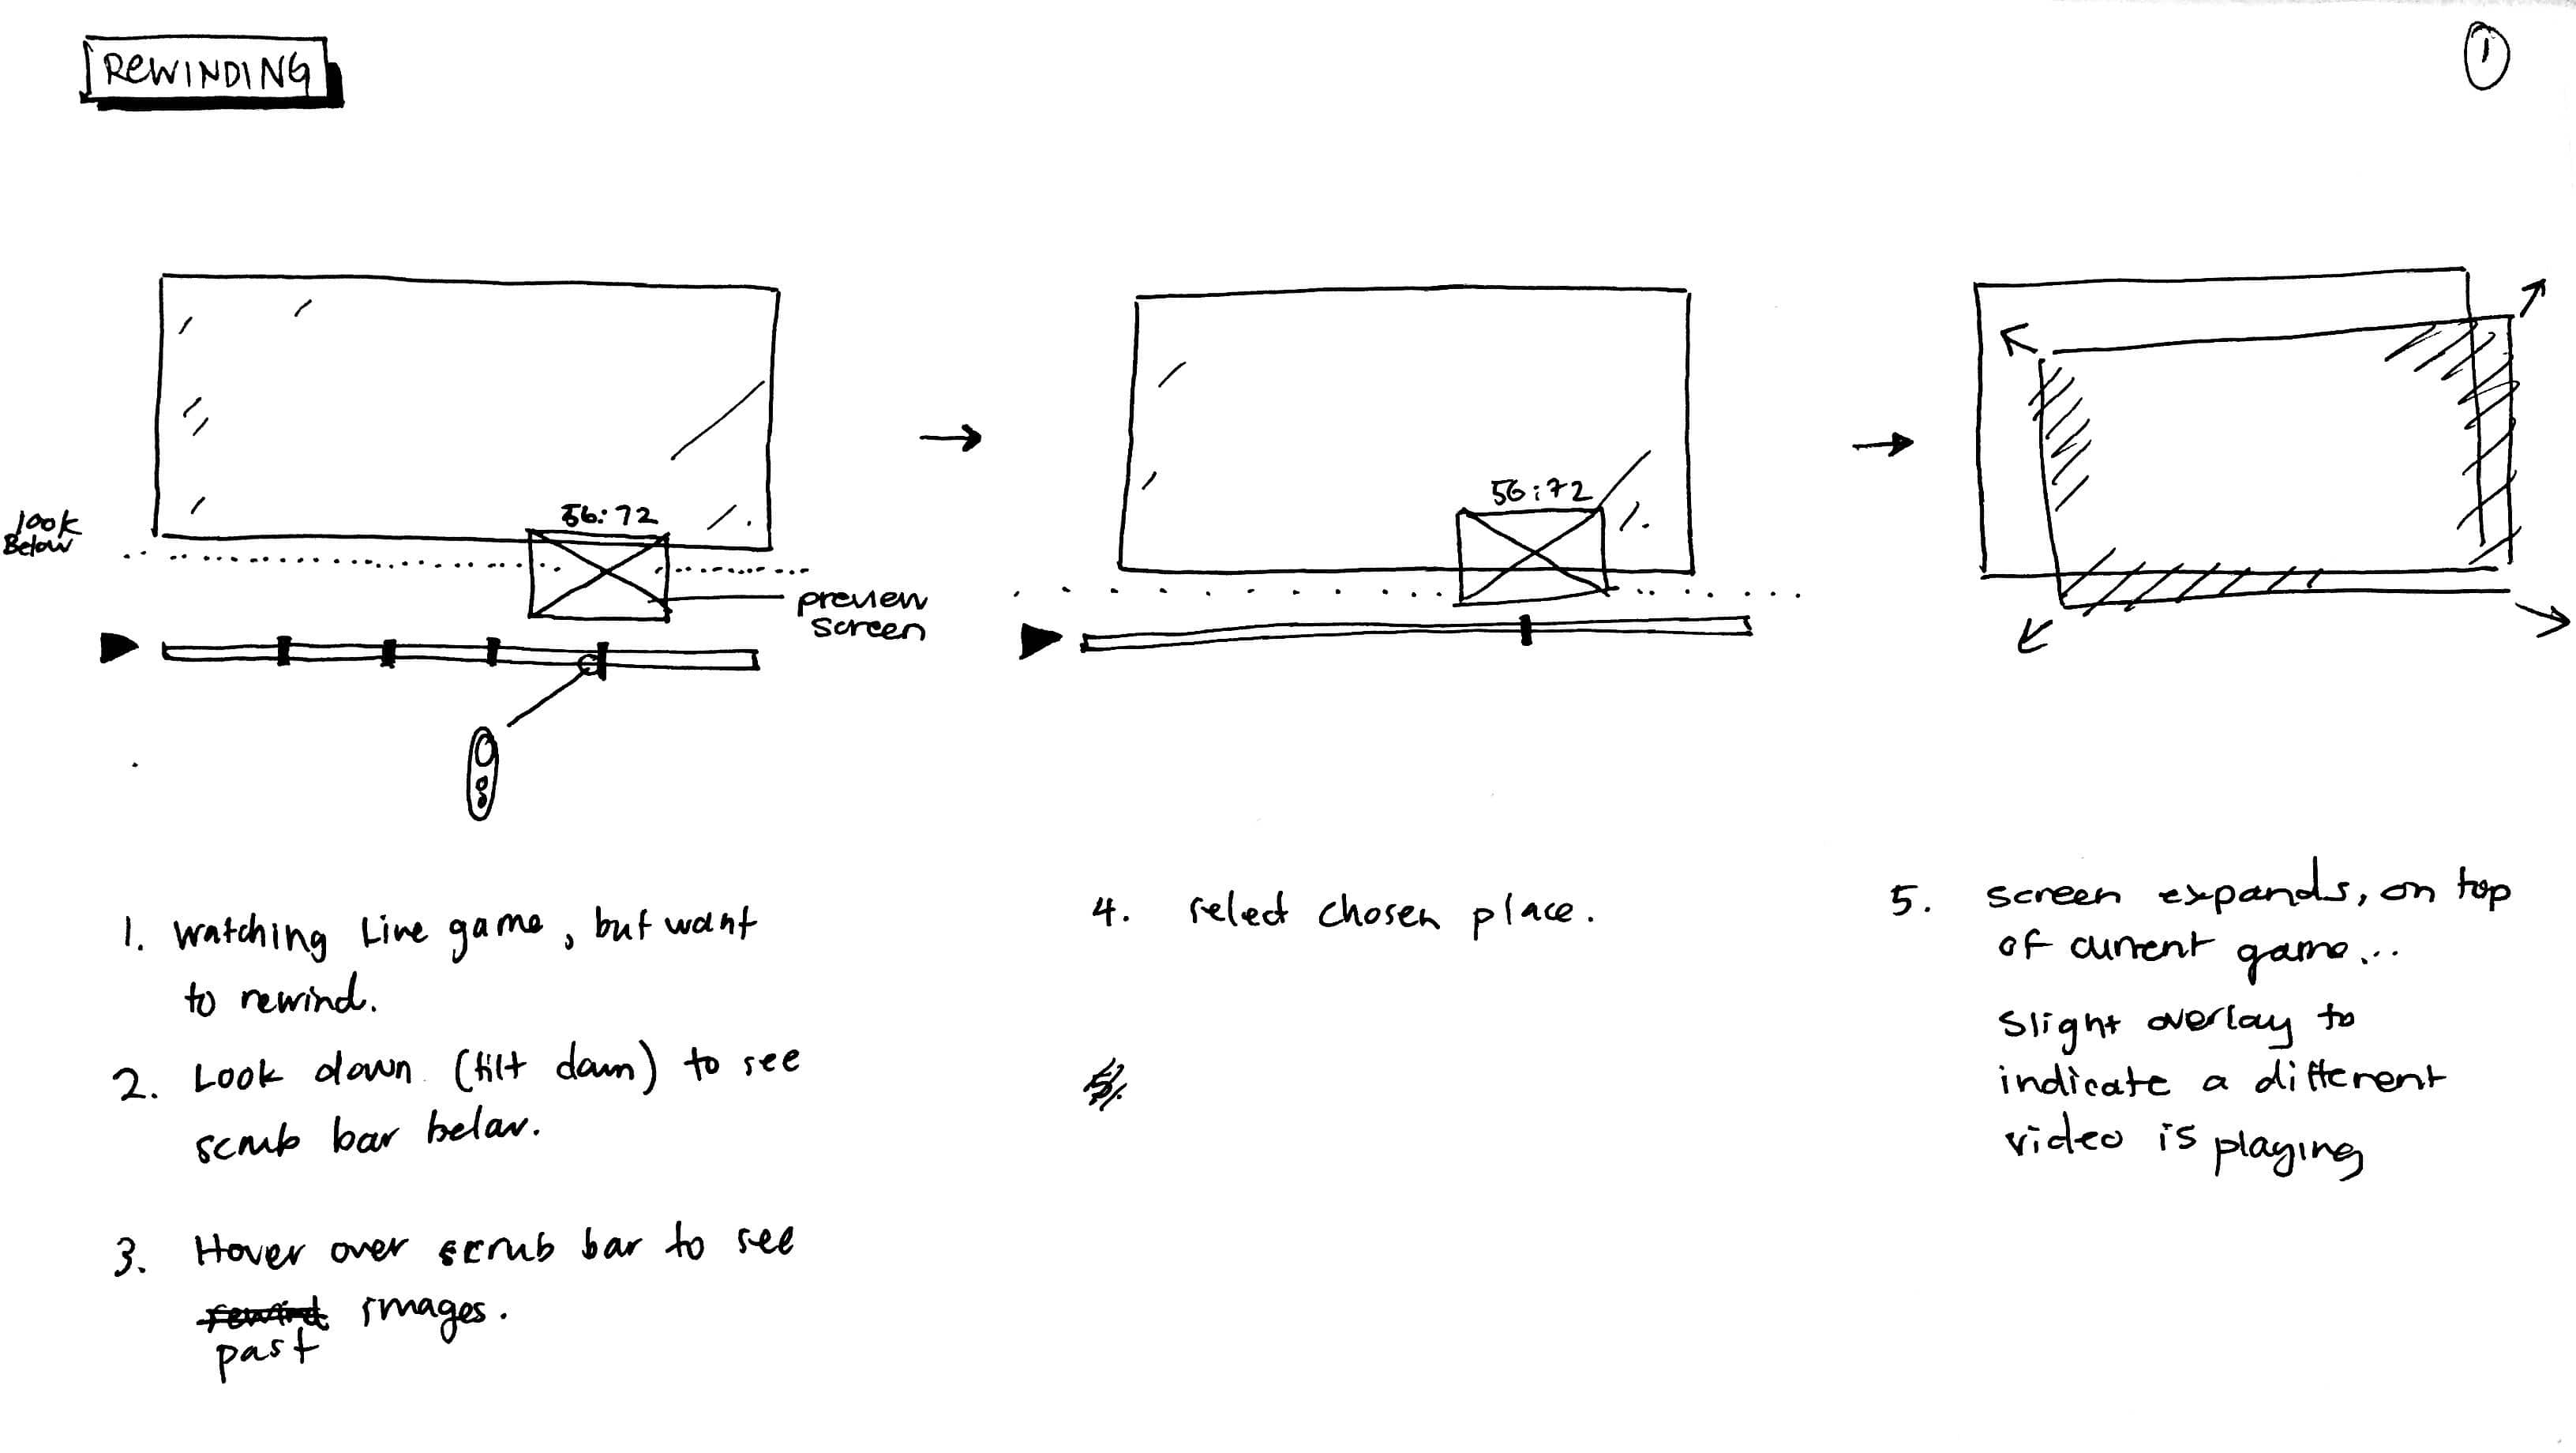 REWINDING
1
look
Below
56:72
preview
screen
56:72
1. Watching Live game, but want
to rewind.
2. Look down (tilt down) to see
scrub bar below.
3. Hover over scrub bar to see
rewind images.
past
4. select chosen place.
5.
5. screen expands, on top
of current game...
Slight overlay to
indicate a different
video is playing